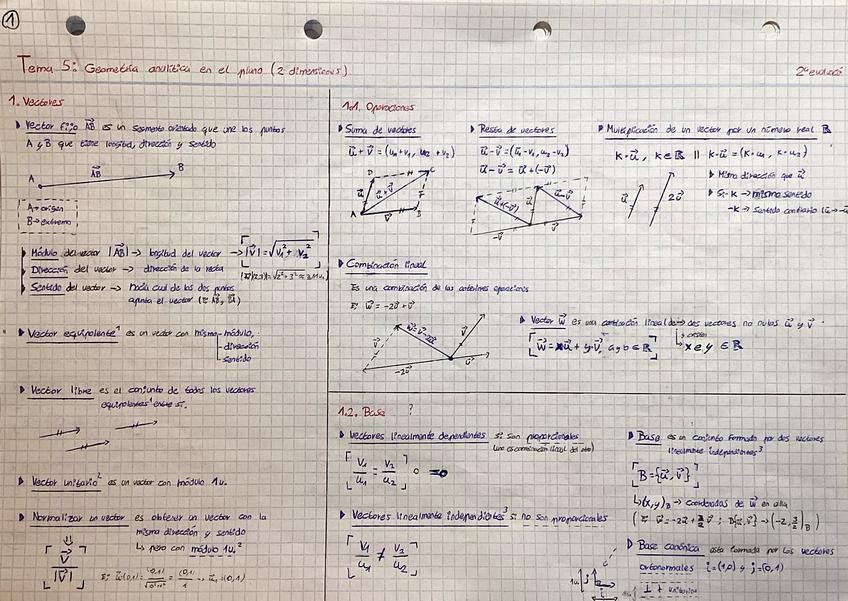 1
Tema 5: Geometría analítica en el plano (2 dimensiones)
2ª evaluació
1. Vectores
Vector fijo AB es un segmento orientado que une los puntos
A y B que tiene longitud, dirección y sentido
A
AB
B
A→origen
B→extremo
Módulo del vector |AB| → longitud del vector → |V| = √V₁² + V₂²
Dirección del vector → dirección de la recta
Sentido del vector → hacia cual de los dos puntos
apunta el vector
Vector equipolente¹ es un vector con mismo - módulo,
- dirección
- sentido
Vector libre es el conjunto de todos los vectores
equipolentes¹ entre sí.
Vector unitario² es un vector con módulo 1u.
Normalizar un vector es obtener un vector con la
misma dirección y sentido
↳ pero con módulo 1u.²
V
|V|
1.1. Operaciones
Suma de vectores
u + v = (u₁+v₁, u₂+v₂)
A
B
C
D
u
u+v
v
Resta de vectores
u - v = (u₁-v₁, u₂-v₂)
u - v = u + (-v)
u+(-v)
u
u-v
-v
v
Multiplicación de un vector por un número real R
k·u, k∈R || k·u = (k·u₁, k·u₂)
Misma dirección que u
Si k → mismo sentido
-k → sentido contrario
u
2u
Combinación lineal
Es una combinación de las anteriores operaciones
Ej: w = -2u + v
-2u
v
Vector w es una combinación lineal de dos vectores no nulos u y v
w = xu + y·v, a y b ∈ R
x e y ∈ R
1.2. Base ?
Vectores linealmente dependientes si son proporcionales
(uno es combinación lineal del otro)
V₁/u₁ = V₂/u₂
Vectores linealmente independientes³ si no son proporcionales
V₁/u₁ ≠ V₂/u₂
Base es un conjunto formado por dos vectores
linealmente independientes³
B = {u, v}
↳(x,y)B → coordenadas de w en ella
Base canónica está formada por los vectores
ortonormales i=(1,0) y j=(0,1)
⊥ + unitarios